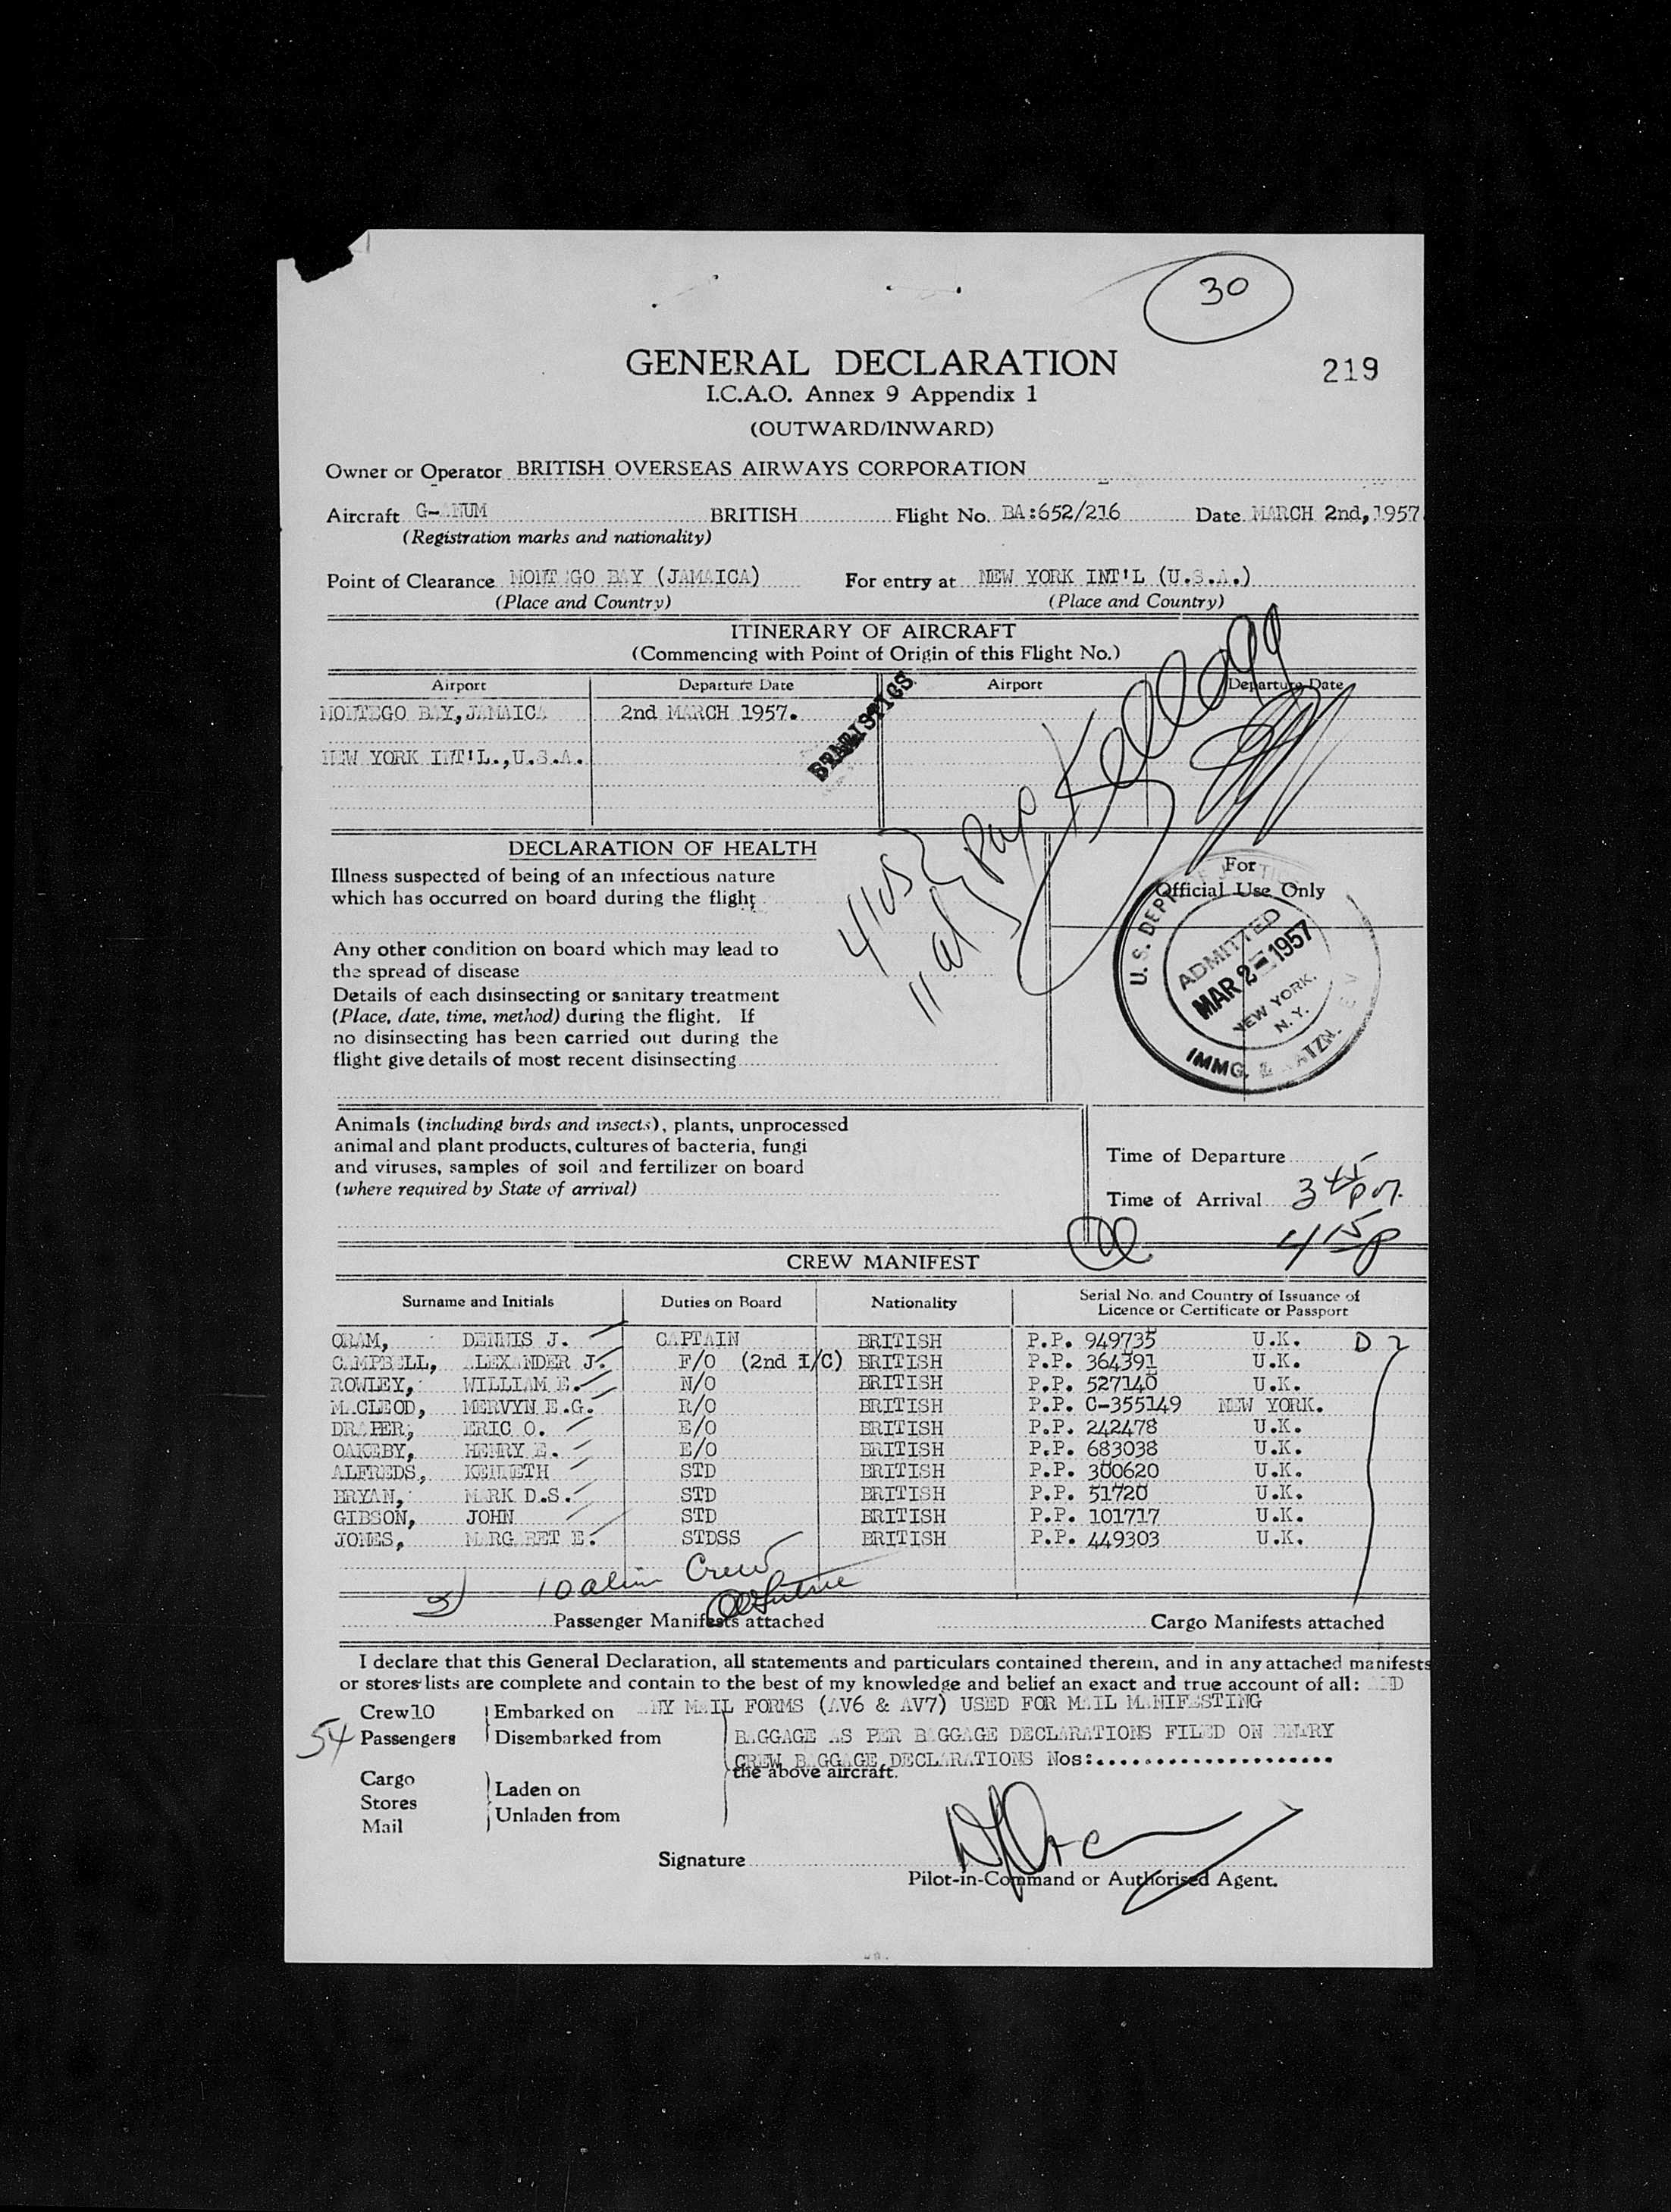 30
GENERAL DECLARATION
219
I.C.A.O. Annex 9 Appendix 1
(OUTWARD/INWARD)
Owner or Operator BRITISH OVERSEAS AIRWAYS CORPORATION
Aircraft G- NUM BRITISH Flight No. BA:652/216 Date MARCH 2nd, 1957
(Registration marks and nationality)
Point of Clearance MONTEGO BAY (JAMAICA) For entry at NEW YORK INT'L (U.S.A.)
(Place and Country) (Place and Country)
ITINERARY OF AIRCRAFT
(Commencing with Point of Origin of this Flight No.)
Airport Departure Date Airport Departure Date
MONTEGO BAY, JAMAICA 2nd MARCH 1957.
NEW YORK INT'L., U.S.A.
DECLARATION OF HEALTH
Illness suspected of being of an infectious nature
which has occurred on board during the flight
Any other condition on board which may lead to
the spread of disease
Details of each disinsecting or sanitary treatment
(Place, date, time, method) during the flight. If
no disinsecting has been carried out during the
flight give details of most recent disinsecting
For
Official Use Only
U. S. DEPT. OF JUSTICE
ADMITTED
MAR 2-1957
NEW YORK,
N. Y.
IMMG. & NATZN.
Animals (including birds and insects), plants, unprocessed
animal and plant products, cultures of bacteria, fungi
and viruses, samples of soil and fertilizer on board
(where required by State of arrival)
Time of Departure
Time of Arrival 3 45 pm
415p
CREW MANIFEST
Surname and Initials Duties on Board Nationality Serial No. and Country of Issuance of
Licence or Certificate or Passport
ORAM, DENNIS J. CAPTAIN BRITISH P.P. 949735 U.K. D 2
CAMPBELL, ALEXANDER J. F/O (2nd I/C) BRITISH P.P. 364391 U.K.
ROWLEY, WILLIAM E. N/O BRITISH P.P. 527140 U.K.
MACLEOD, MERVYN E.G. R/O BRITISH P.P. C-355149 NEW YORK.
DRAPER, ERIC O. E/O BRITISH P.P. 242478 U.K.
OAKEBY, HENRY E. E/O BRITISH P.P. 683038 U.K.
ALFREDS, KENNETH STD BRITISH P.P. 300620 U.K.
BRYAN, MARK D.S. STD BRITISH P.P. 51720 U.K.
GIBSON, JOHN STD BRITISH P.P. 101717 U.K.
JONES, MARGARET E. STDSS BRITISH P.P. 449303 U.K.
10 alien Crew
Passenger Manifests attached Cargo Manifests attached
I declare that this General Declaration, all statements and particulars contained therein, and in any attached manifests
or stores lists are complete and contain to the best of my knowledge and belief an exact and true account of all: AND
Crew 10 Embarked on ANY MAIL FORMS (AV6 & AV7) USED FOR MAIL MANIFESTING
54 Passengers Disembarked from BAGGAGE AS PER BAGGAGE DECLARATIONS FILED ON ENTRY
CREW BAGGAGE DECLARATIONS Nos:....................
the above aircraft.
Cargo
Stores
Mail
Laden on
Unladen from
Signature
Pilot-in-Command or Authorised Agent.